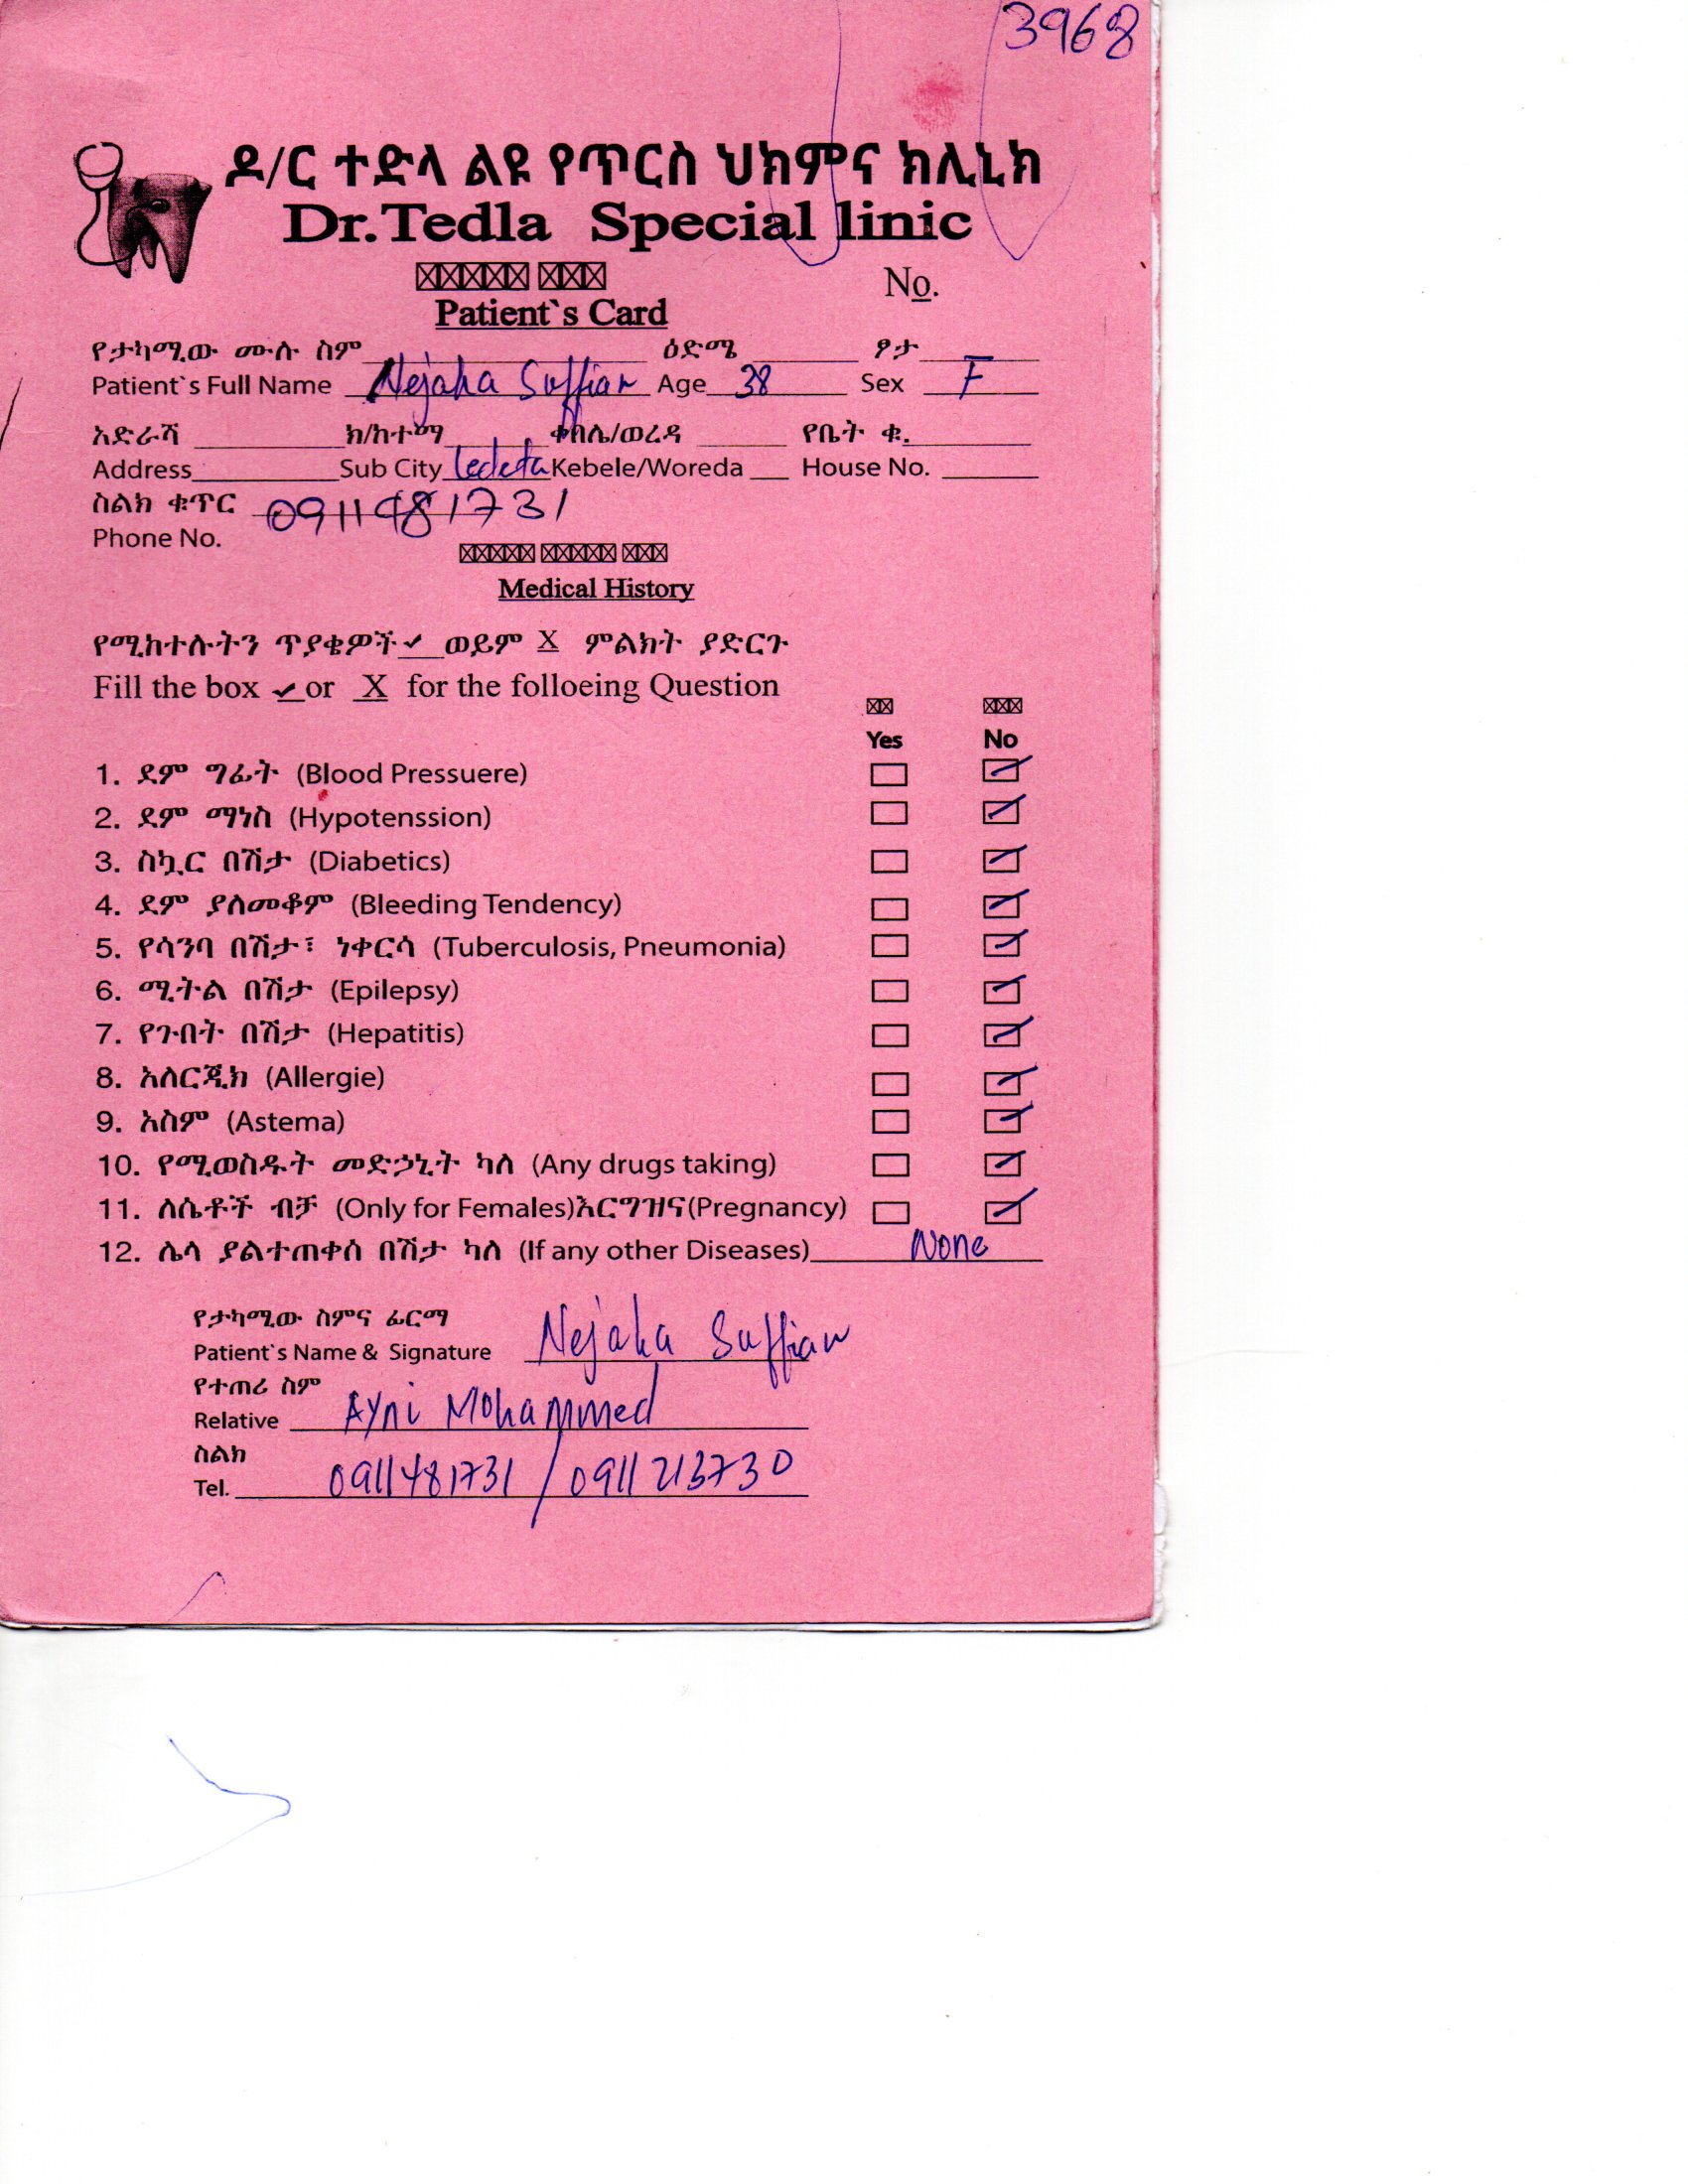 3968
ዶ/ር ተድላ ልዩ የጥርስ ህክምና ክሊኒክ
Dr.Tedla Special linic
No.
Patient`s Card
የታካሚው ሙሉ ስም ዕድሜ ፆታ
Patient`s Full Name Nejaha Suffian Age 38 Sex F
አድራሻ ክ/ከተማ ቀበሌ/ወረዳ የቤት ቁ.
Address Sub City Ledeta Kebele/Woreda House No.
ስልክ ቁጥር 0911481731
Phone No.
Medical History
የሚከተሉትን ጥያቄዎች ✓ ወይም X ምልክት ያድርጉ
Fill the box ✓ or X for the folloeing Question
Yes No
1. ደም ግፊት (Blood Pressuere)
2. ደም ማነስ (Hypotenssion)
3. ስኳር በሽታ (Diabetics)
4. ደም ያለመቆም (Bleeding Tendency)
5. የሳንባ በሽታ፣ ነቀርሳ (Tuberculosis, Pneumonia)
6. ሚትል በሽታ (Epilepsy)
7. የጉበት በሽታ (Hepatitis)
8. አለርጂክ (Allergie)
9. አስም (Astema)
10. የሚወስዱት መድኃኒት ካለ (Any drugs taking)
11. ለሴቶች ብቻ (Only for Females)እርግዝና(Pregnancy)
12. ሌላ ያልተጠቀሰ በሽታ ካለ (If any other Diseases) None
የታካሚው ስምና ፊርማ
Patient`s Name & Signature Nejaha Suffian
የተጠሪ ስም
Relative Ayni Mohammed
ስልክ
Tel. 0911481731 / 0911213730